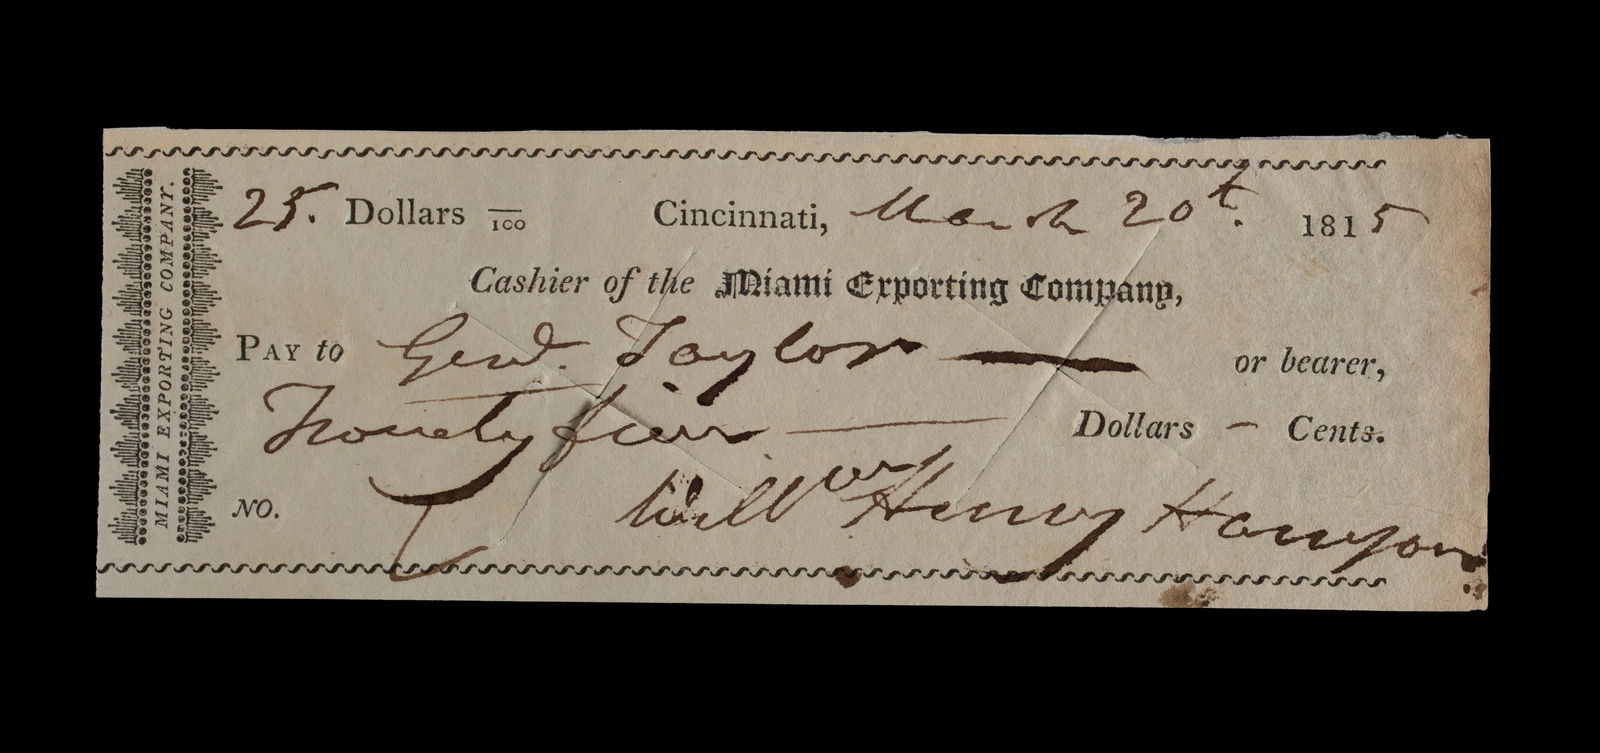 MIAMI EXPORTING COMPANY.
25. Dollars /100 Cincinnati, March 20t. 1815
Cashier of the Miami Exporting Company,
PAY to Geo. Taylor or bearer,
Twenty five Dollars — Cents.
NO. Willm Henry Harrison